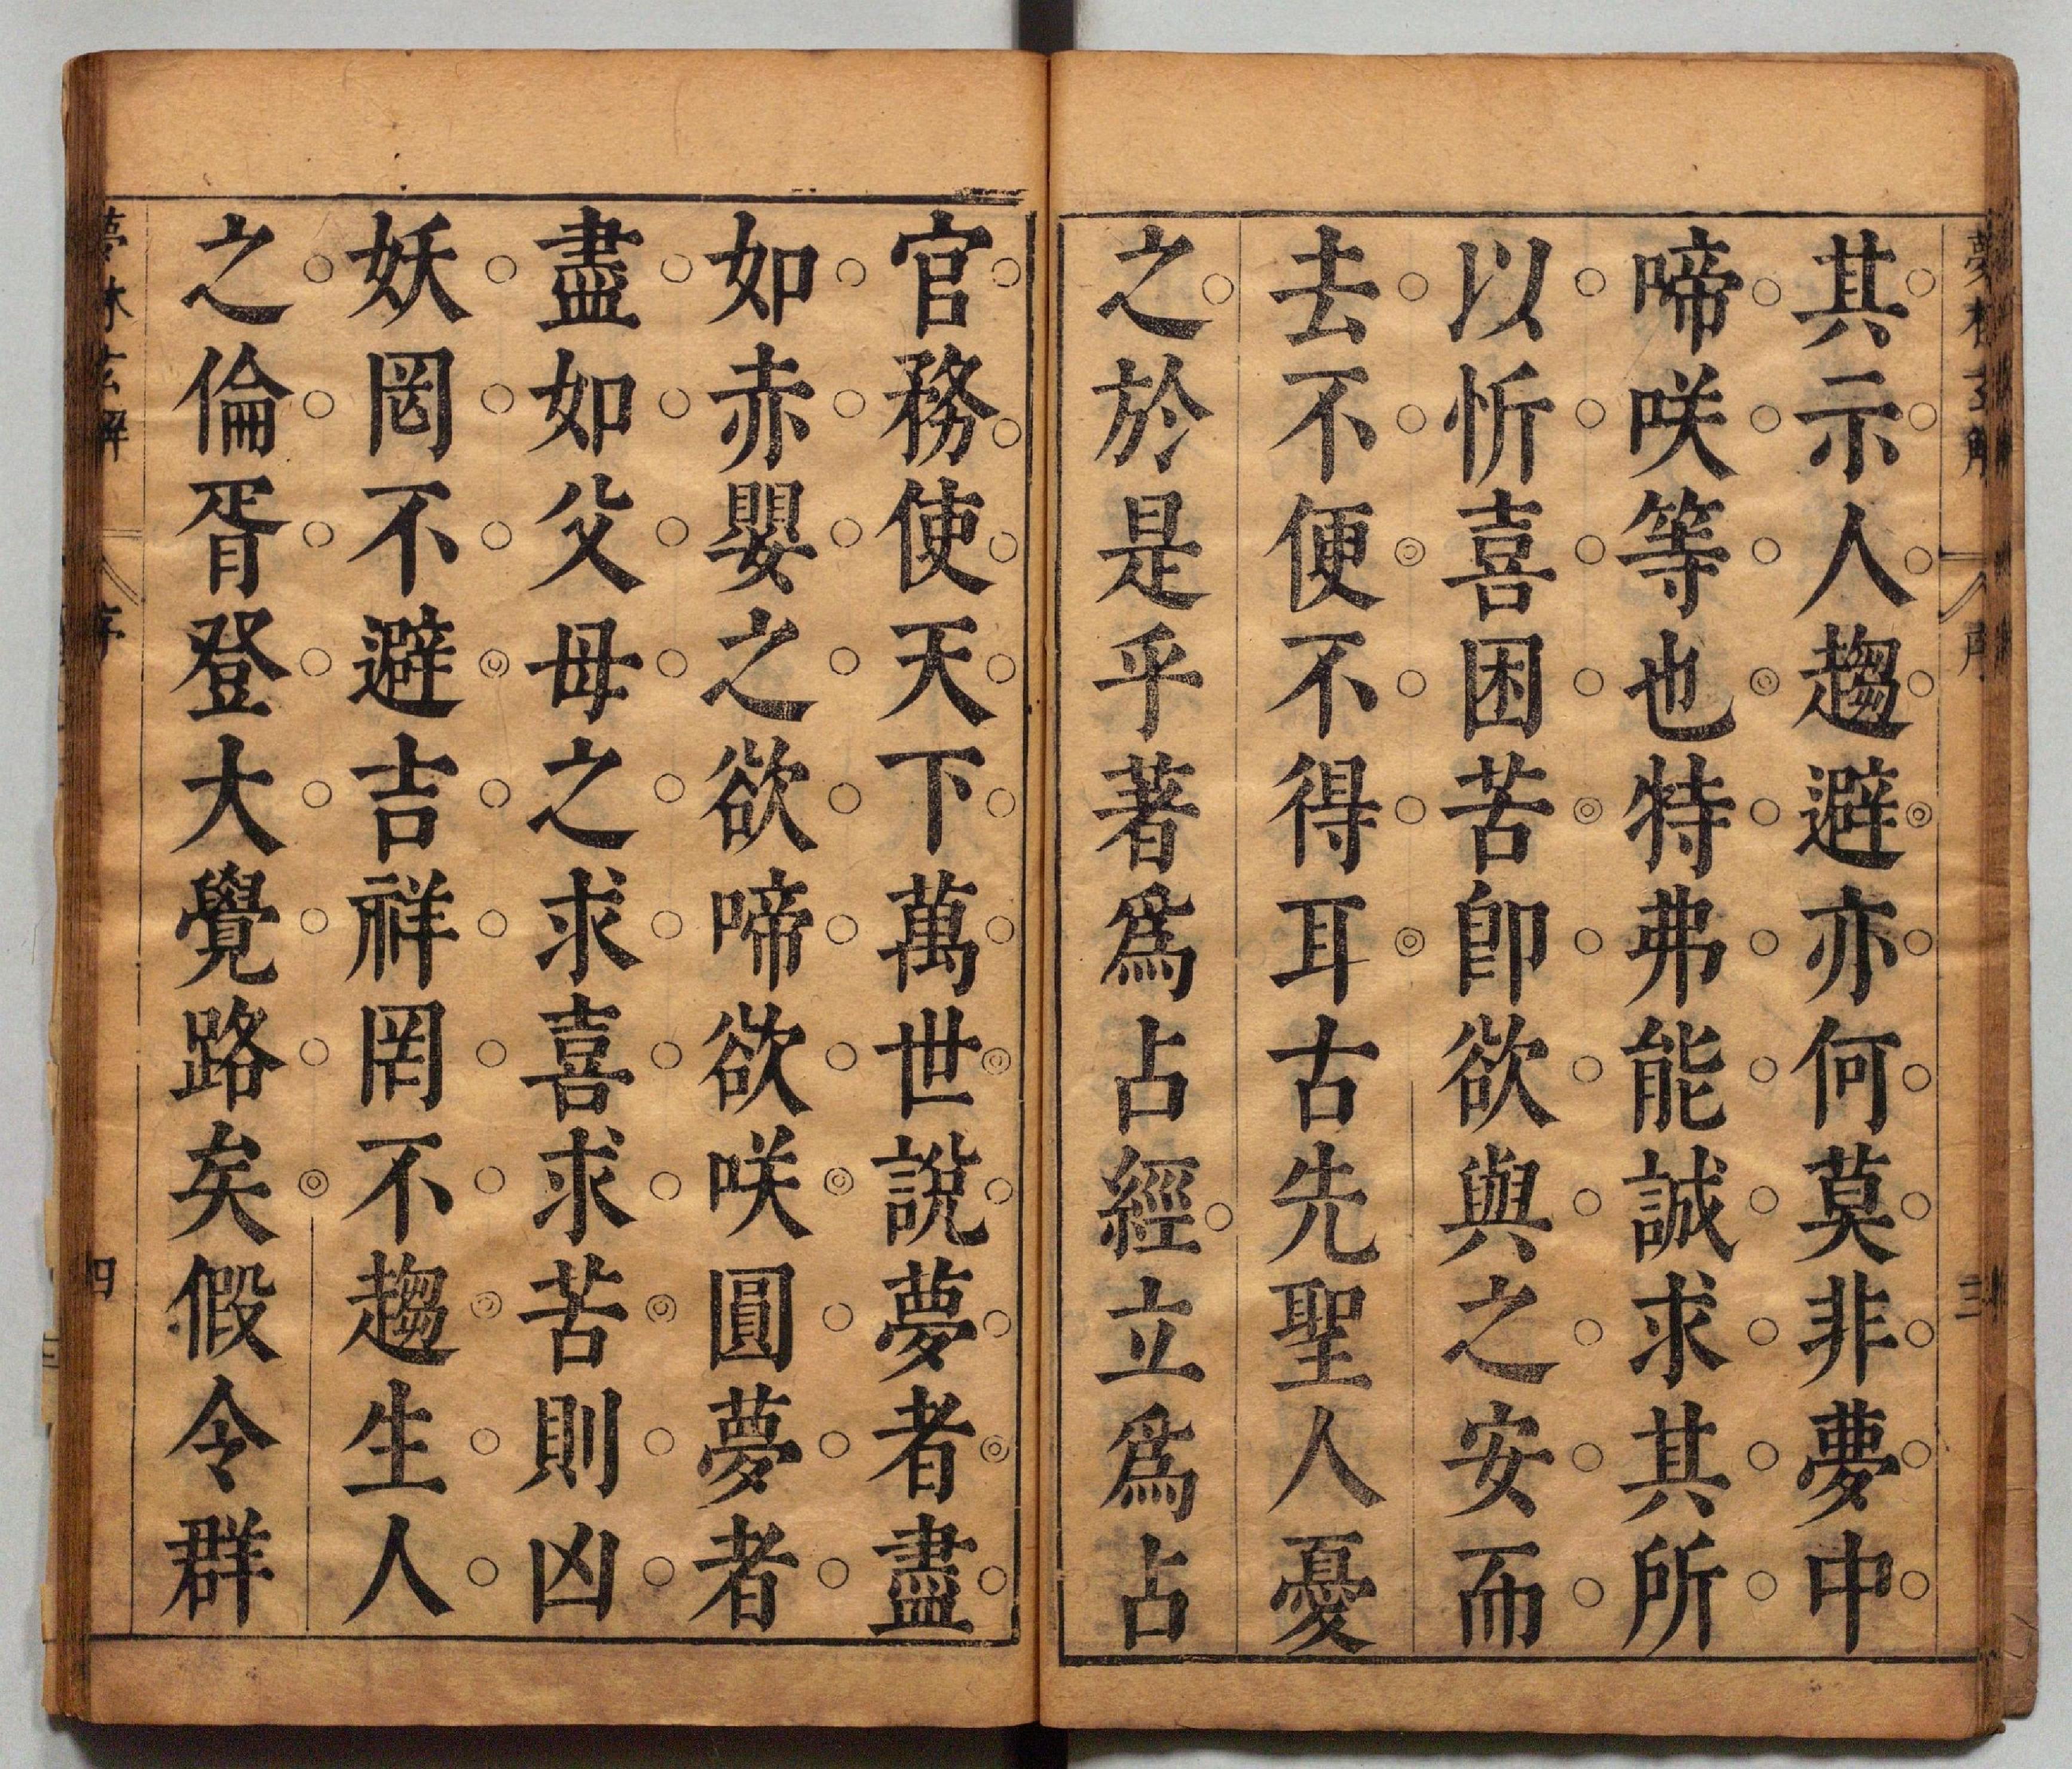 其示人趨避亦何莫非夢中
啼咲等也特弗能誠求其所
以忻喜困苦卽欲與之安而
去不便不得耳古先聖人憂
之於是乎著爲占經立爲占
官務使天下萬世說夢者盡
如赤嬰之欲啼欲咲圓夢者
盡如父母之求喜求苦則凶
妖罔不避吉祥罔不趨生人
之倫胥登大覺路矣假令群
夢林玄解
序
四